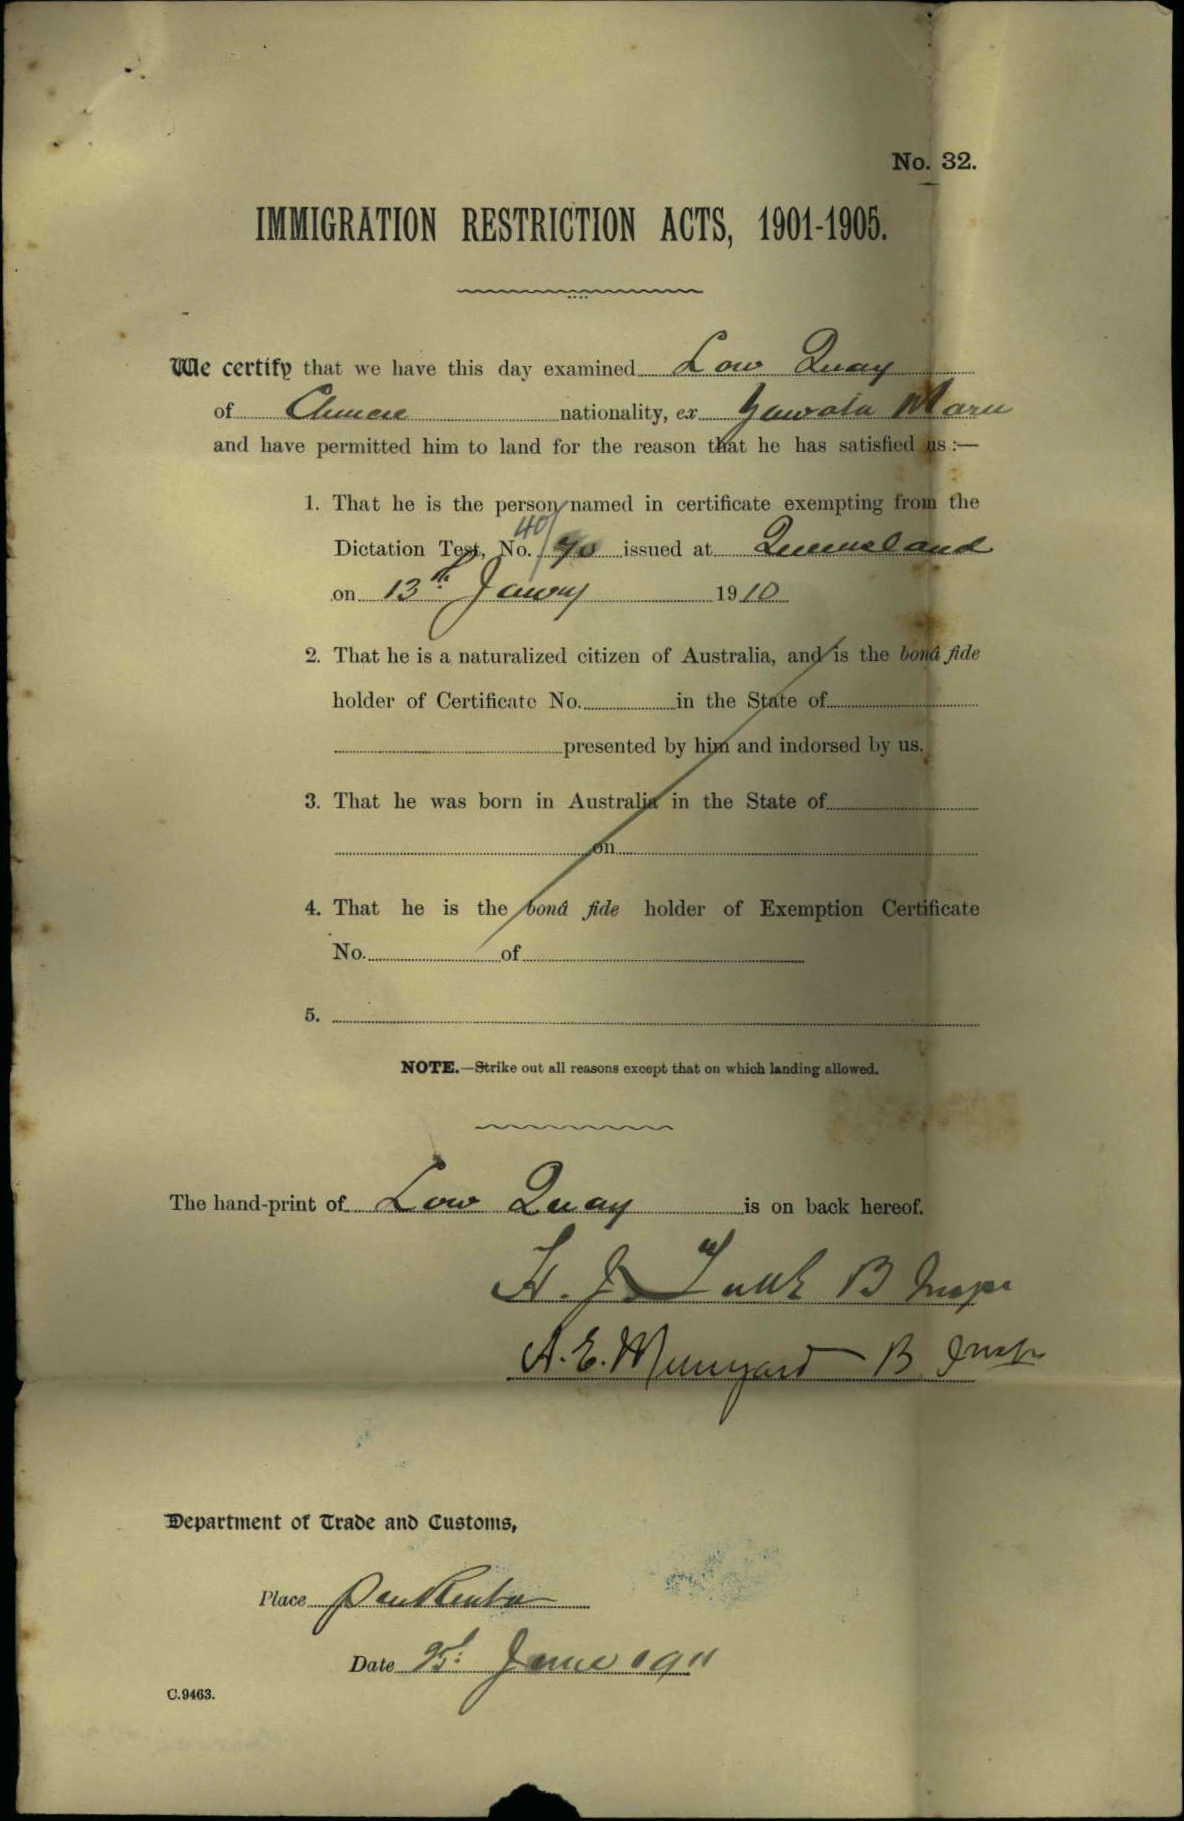 No. 32.
IMMIGRATION RESTRICTION ACTS, 1901-1905.
We certify that we have this day examined Low Quay
of Chinese nationality, ex Yawata Maru
and have permitted him to land for the reason that he has satisfied us :—
1. That he is the person named in certificate exempting from the
Dictation Test, No. 40/ 10 issued at Queensland
on 13th Janry 1910
2. That he is a naturalized citizen of Australia, and is the bonâ fide
holder of Certificate No. in the State of
presented by him and indorsed by us.
3. That he was born in Australia in the State of
on
4. That he is the bonâ fide holder of Exemption Certificate
No. of
5.
NOTE.—Strike out all reasons except that on which landing allowed.
The hand-print of Low Quay is on back hereof.
H. J. B Inspr
A. E. Munyard B. Inspr
Department of Trade and Customs,
Place Pinkenba
Date June 1911
C.9463.